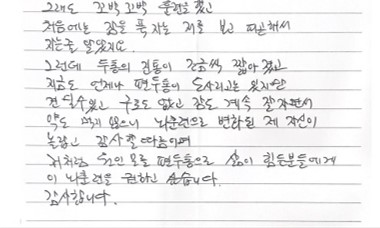 그래도 꼬박 꼬박 훈련을 했고
처음에는 잠을 푹 자는 저를 보고 피곤해서
자는줄 알았지요.
그런데 두통의 진통이 조금씩 짧아 졌고
지금도 언제나 편두통이 도사리고는 있지만
견딜수있고 구토도 없고 잠도 계속 잘자면서
약도 먹지 않으니 뇌훈련으로 변화된 제 자신이
놀랍고 감사할 따름이며
저처럼 원인 모를 편두통으로 삶이 힘든분들에게
이 뇌훈련을 권하고 싶습니다.
감사합니다.